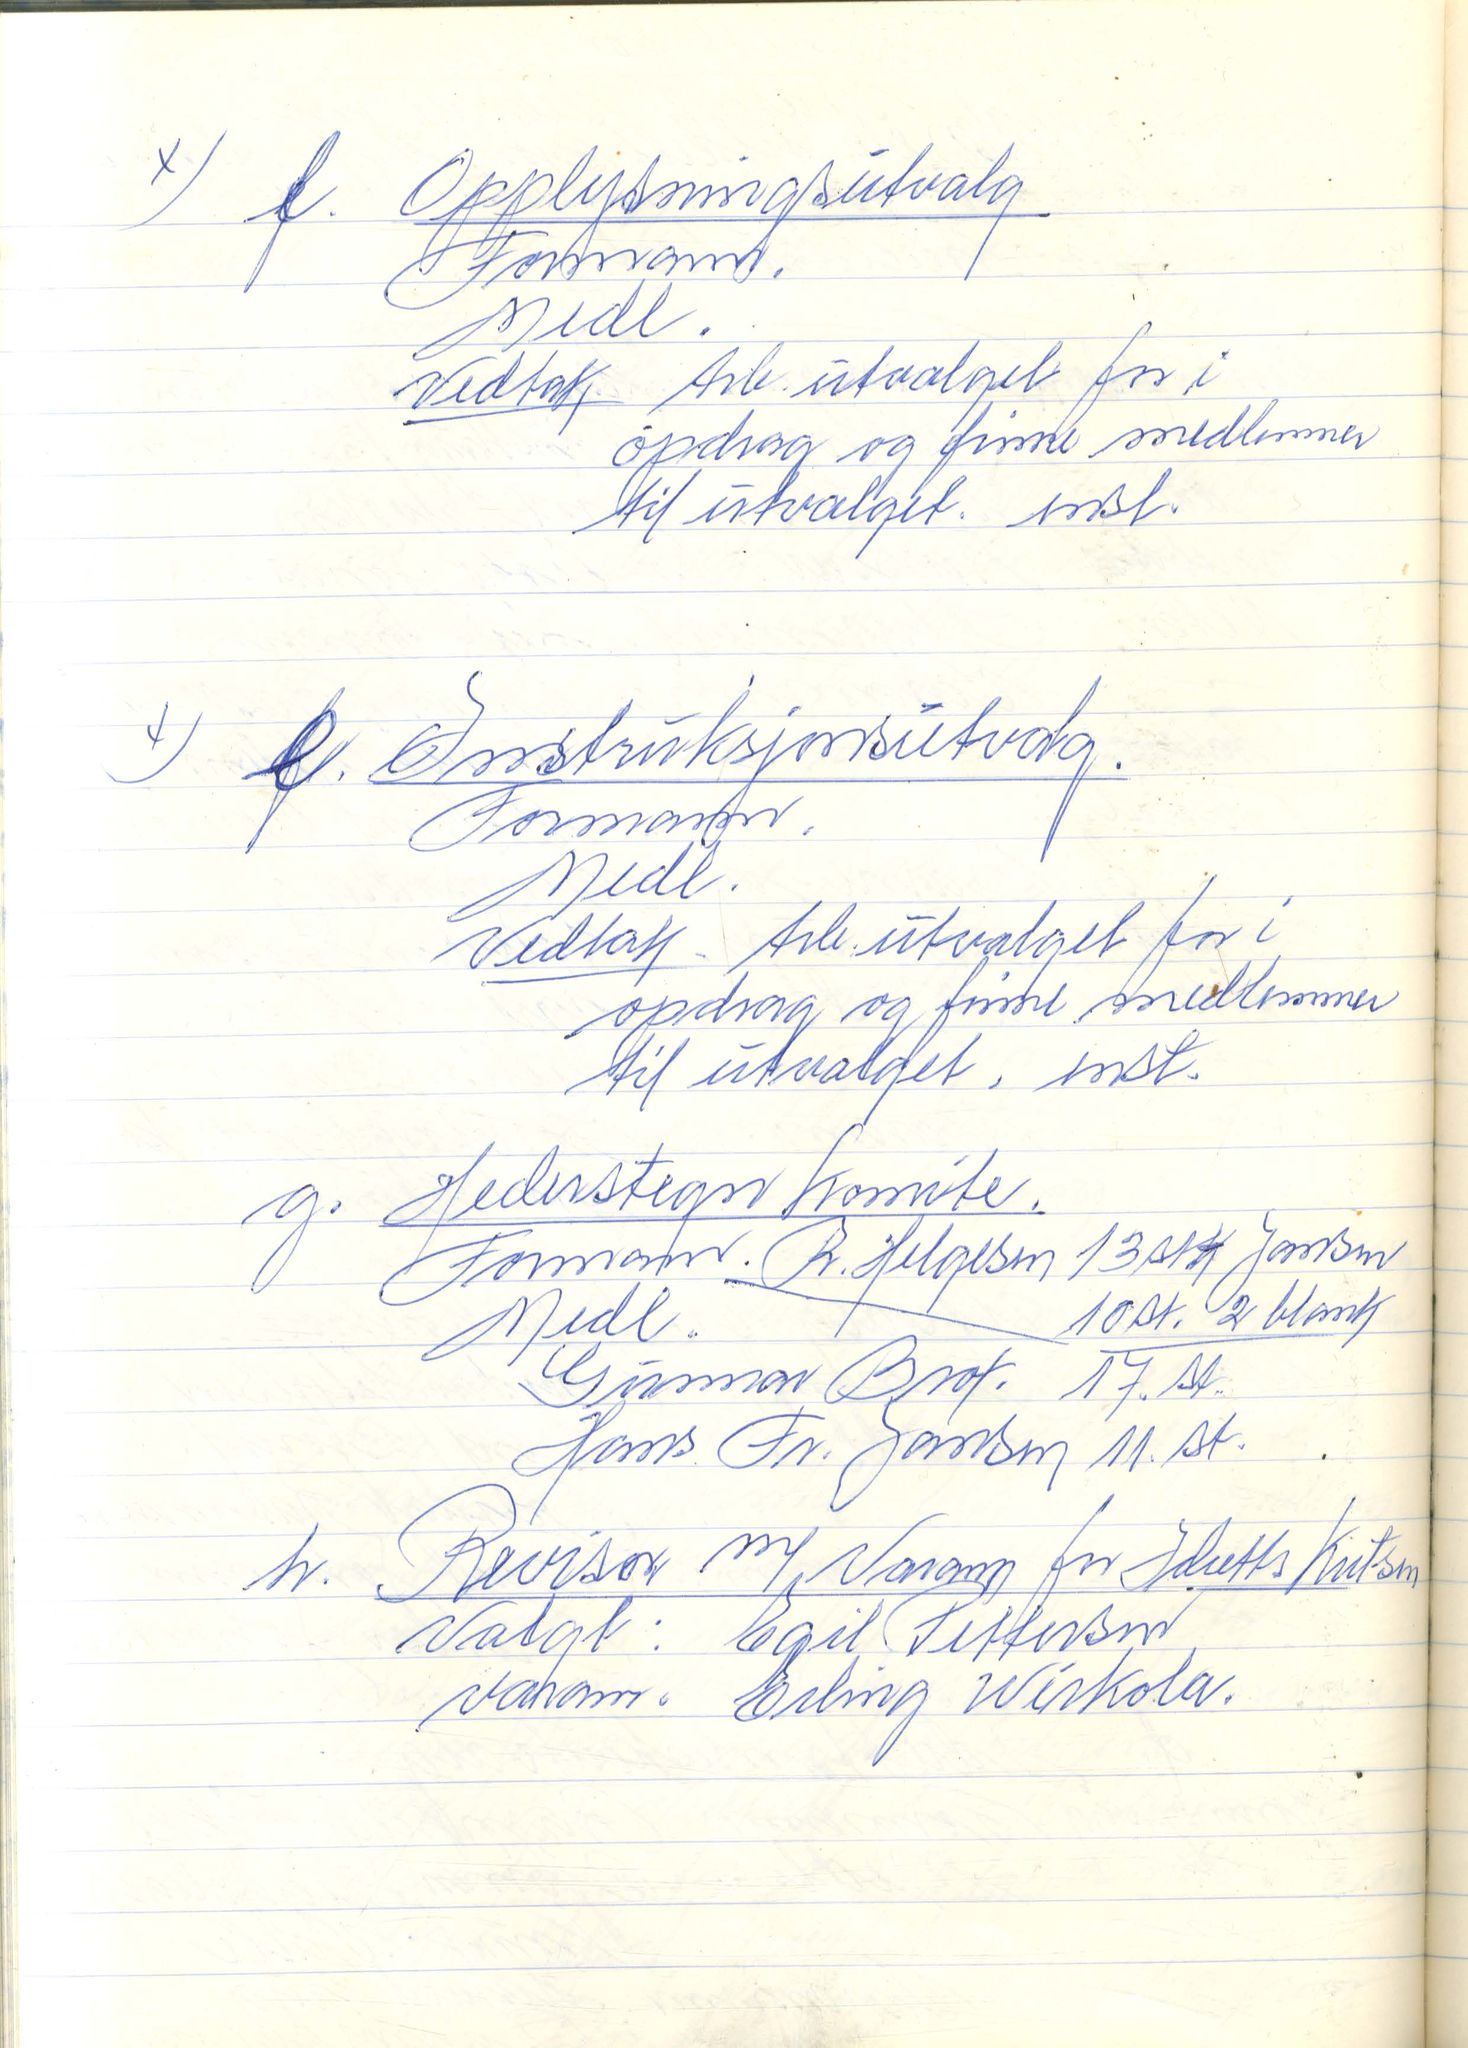 x) f. Opplysningsutvalg
Formann.
Medl.
Vedtak. Arb. utvalget får i
opdrag og finne medlemmer
til utvalget. enst.
x) f. Instruksjonsutvalg.
Formann.
Medl.
Vedtak - Arb. utvalget får i
opdrag og finne medlemmer
til utvalget. enst.
g. Hederstegn Komite.
Formann. R. Helgesen 13 st Jansen
Medl. 10 st. 2 blank
Gunnar Brot. 17. st.
Hans Fr. Jansen 11. st.
h. Revisor m/ Varam for Idretts
Valgt: Egil Pettersen
varam. Erling Wirkola.